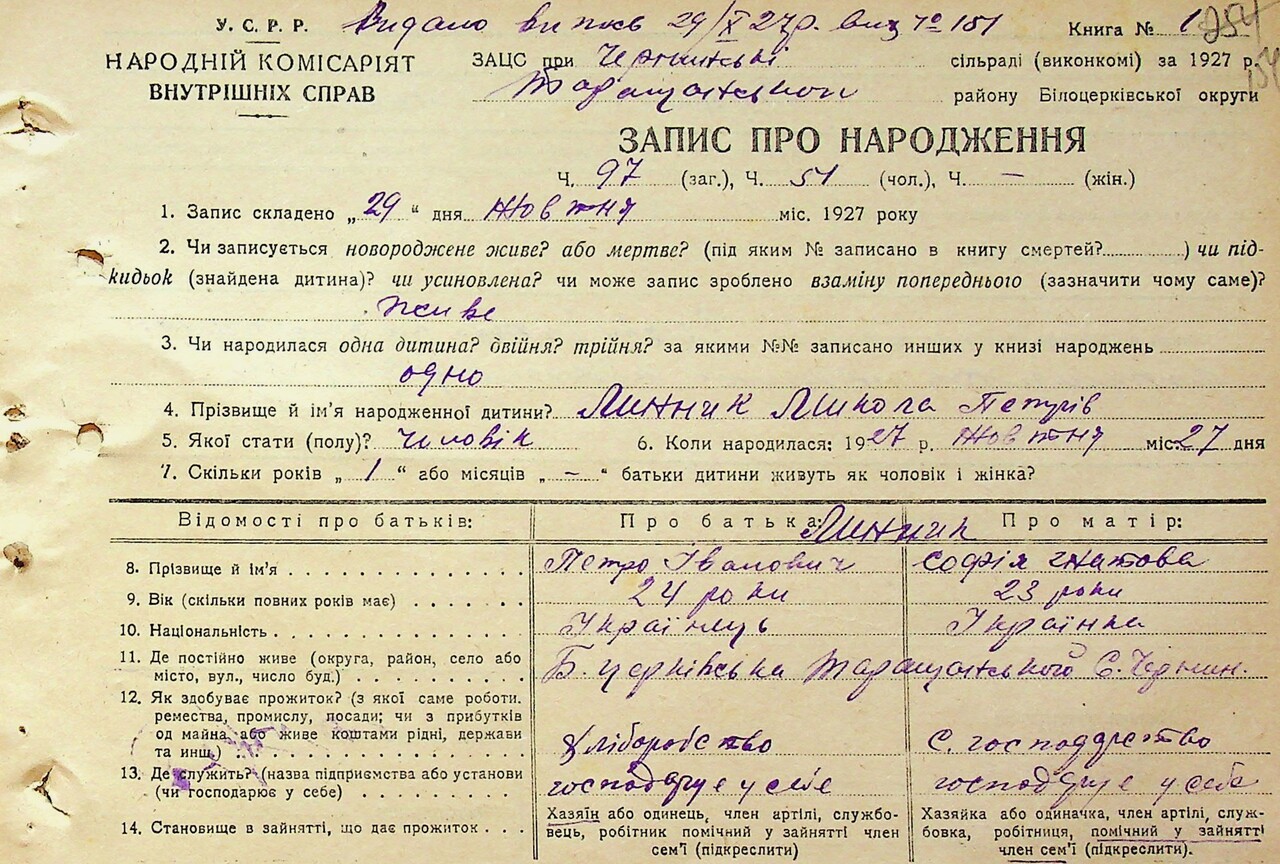 У. С. Р. Р. Видано випись 29/X 27р. №151 Книга № 1 254
НАРОДНІЙ КОМІСАРІЯТ ЗАЦС при сільраді (виконкомі) за 1927 р.
ВНУТРІШНІХ СПРАВ Таращанськ району Білоцерківської округи
ЗАПИС ПРО НАРОДЖЕННЯ
Ч. 97 (заг.), Ч. 51 (чол.), Ч. — (жін.)
1. Запис складено „29“ дня Жовтня міс. 1927 року
2. Чи записується новороджене живе? або мертве? (під яким № записано в книгу смертей?) чи під-
кидьок (знайдена дитина)? чи усиновлена? чи може запис зроблено взаміну попереднього (зазначити чому саме)?
живе
3. Чи народилася одна дитина? двійня? трійня? за якими №№ записано инших у книзі народжень
одно
4. Прізвище й ім'я народженної дитини? Линник Микола Петрів
5. Якої стати (полу)? Чиловік 6. Коли народилася: 1927 р. Жовтня міс. 27 дня
7. Скільки років „1“ або місяців „—“ батьки дитини живуть як чоловік і жінка?
Відомості про батьків: Про батька: Линник Про матір:
8. Прізвище й ім'я Петро Іванович Софія Гнатова
9. Вік (скільки повних років має) 24 роки 23 роки
10. Національність Українець Українка
11. Де постійно живе (округа, район, село або
місто, вул., число буд.) Б. церківська Таращанського С.
12. Як здобуває прожиток? (з якої саме роботи,
ремества, промислу, посади; чи з прибутків
од майна, або живе коштами рідні, держави
та инш.) Хліборобство С. господарство
13. Де служить? (назва підприємства або установи
(чи господарює у себе) господарує у себе господарує у себе
14. Становище в зайнятті, що дає прожиток
Хазяїн або одинець, член артілі, службо-
вець, робітник помічний у зайнятті член
сем'ї (підкреслити)
Хазяйка або одиначка, член артілі, служ-
бовка, робітниця, помічний у зайнятті
член сем'ї (підкреслити).